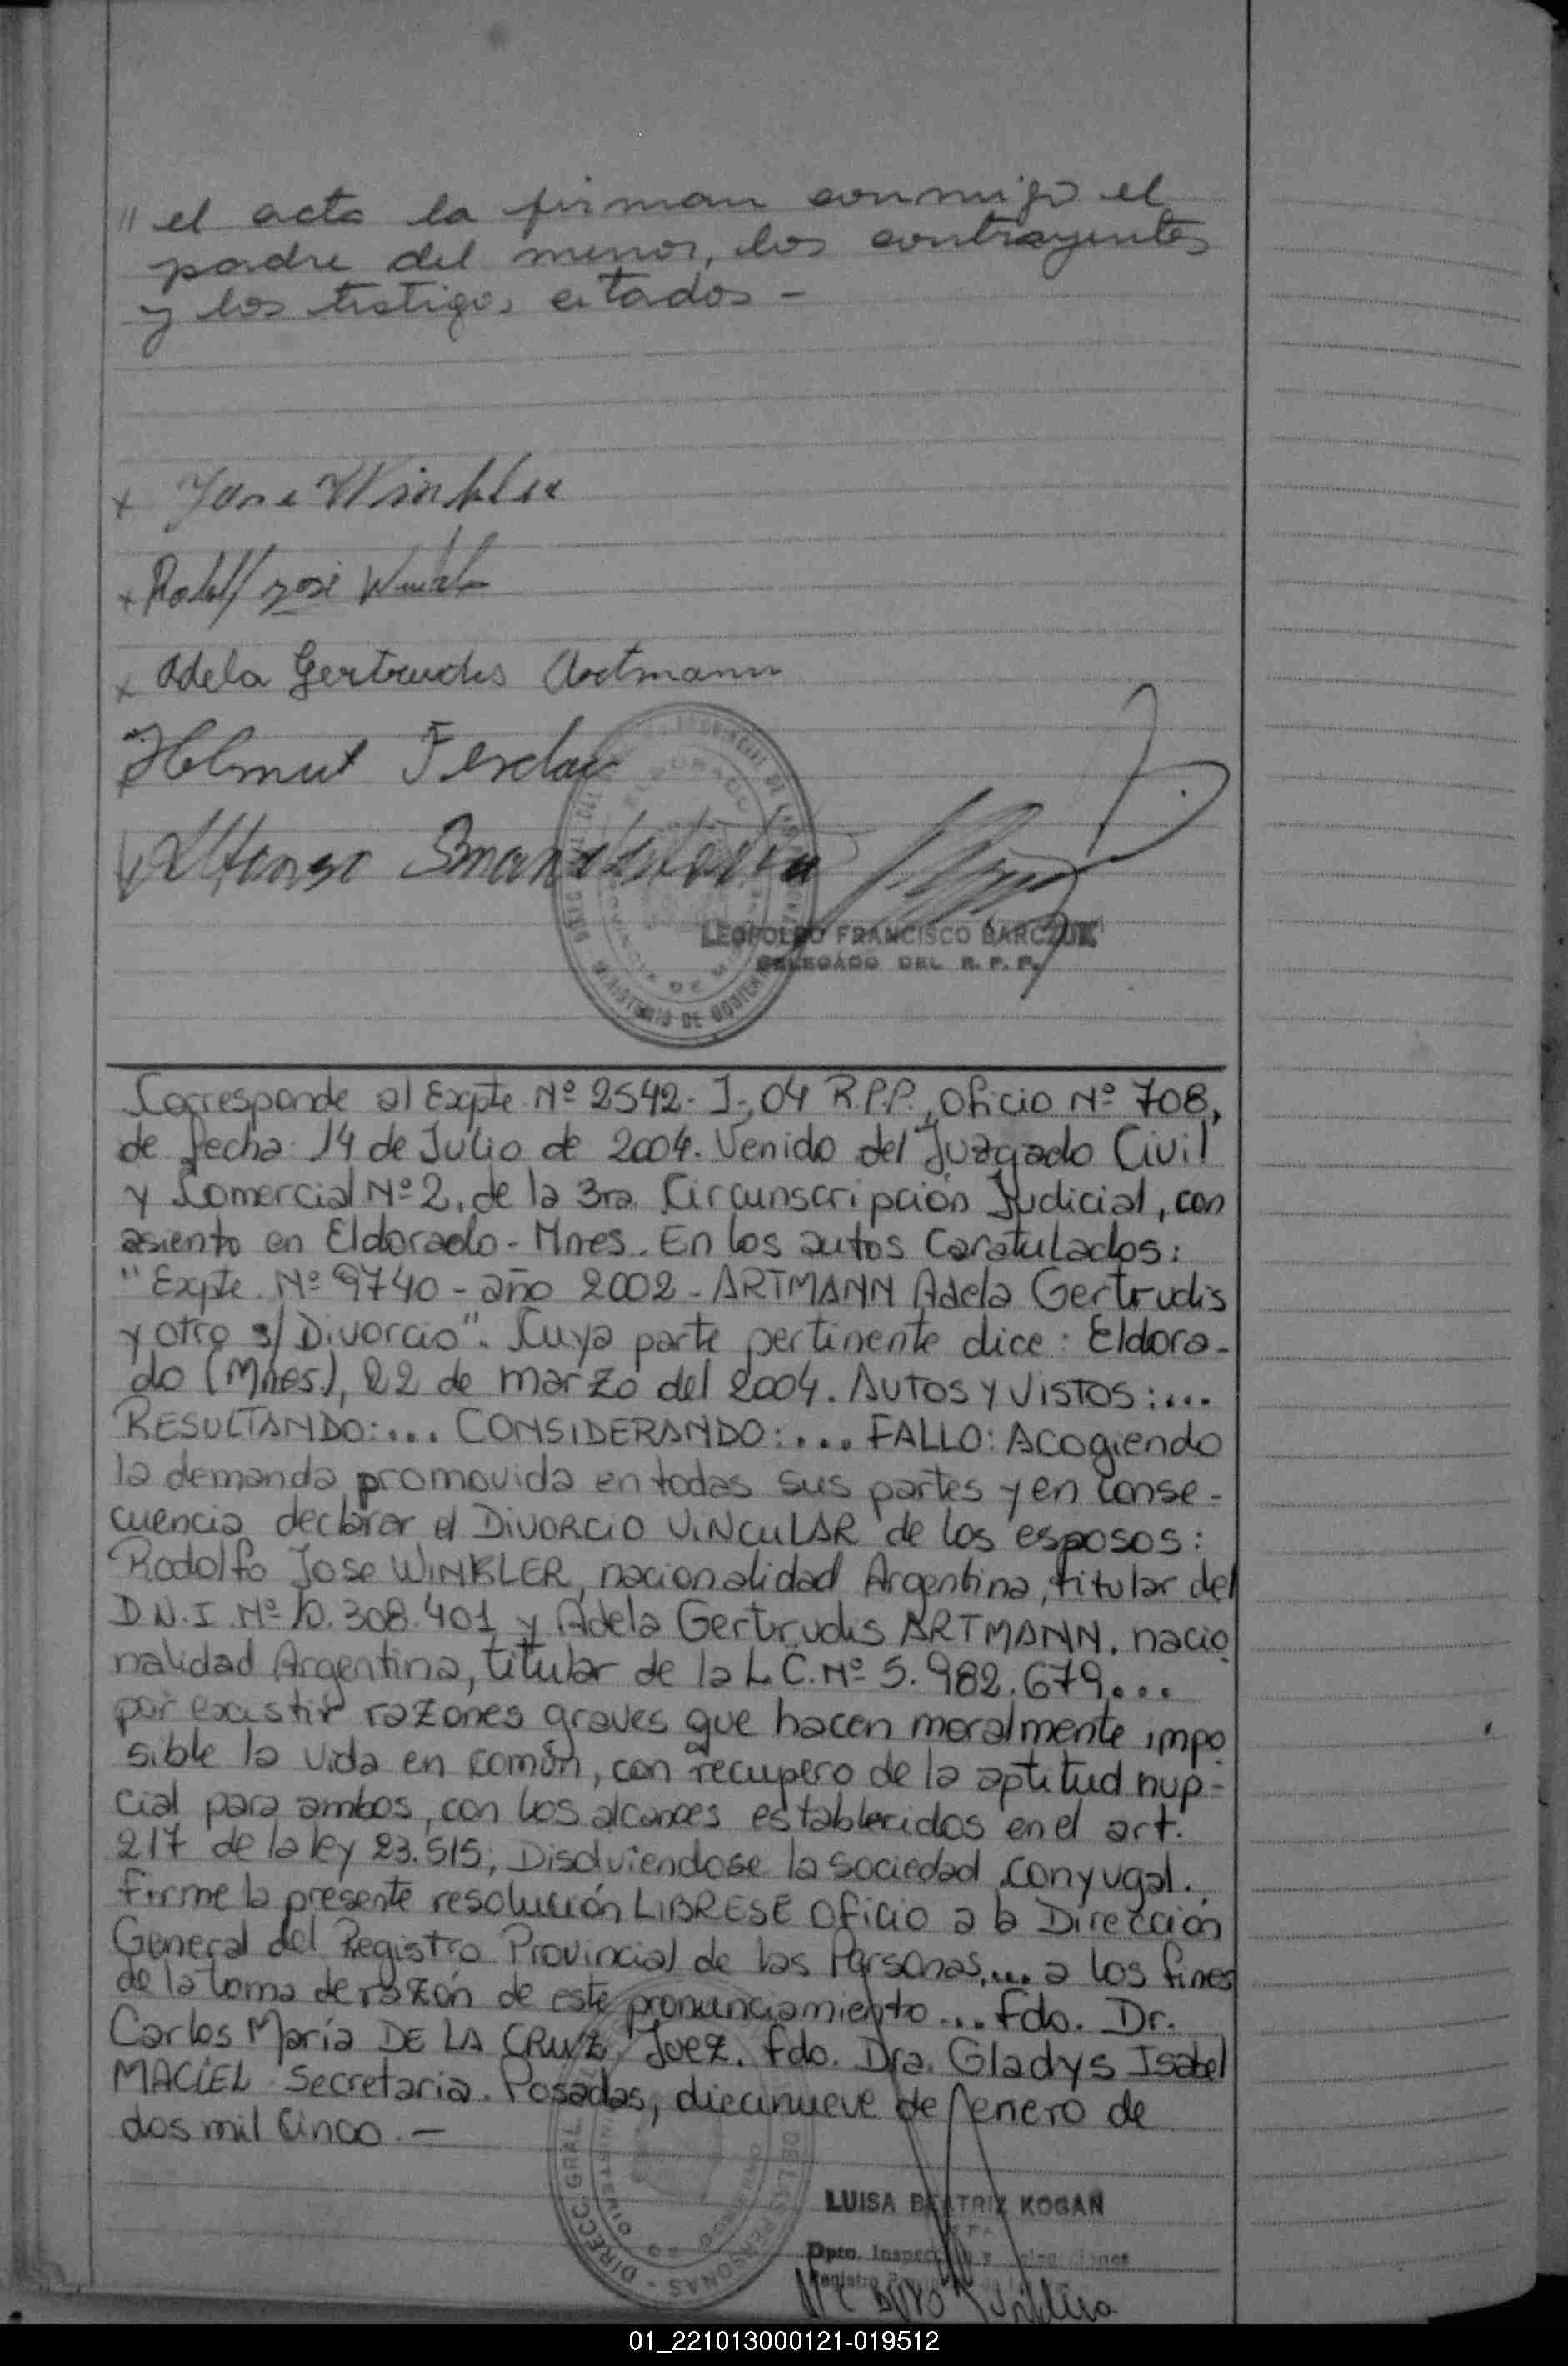 " el acta la firman conmigo el
padre del menor, los contrayentes
y los testigos citados -
x José Winkler
x Rodolfo José Winkler
x Adela Gertrudis Artmann
Helmut
Alfonso
LEOPOLDO FRANCISCO BARCZUK
DELEGADO DEL R. P. P.
MINISTERIO DE GOBIERNO
Corresponde al Expte. Nº 2542-I-,04 R.P.P., Oficio Nº 708,
de fecha 14 de Julio de 2004. Venido del Juzgado Civil
y Comercial Nº 2, de la 3ra. Circunscripción Judicial, con
asiento en Eldorado - Mnes. En los autos Caratulados:
"Expte. Nº 9740 - año 2002 - ARTMANN Adela Gertrudis
y otro s/ Divorcio". Cuya parte pertinente dice: Eldora-
do (Mnes.), 22 de marzo del 2004. AUTOS Y VISTOS:...
RESULTANDO:... CONSIDERANDO:... FALLO: Acogiendo
la demanda promovida en todas sus partes y en conse-
cuencia declarar el DIVORCIO VINCULAR de los esposos:
Rodolfo Jose WINKLER, nacionalidad Argentina, titular del
D.N.I. Nº 10.308.401 y Adela Gertrudis ARTMANN. nacio
nalidad Argentina, titular de la L.C. Nº 5.982.679...
por existir razones graves que hacen moralmente impo
sible la vida en común, con recupero de la aptitud nup-
cial para ambos, con los alcances establecidos en el art.
217 de la ley 23.515, Disolviendose la sociedad conyugal.
Firme la presente resolución LIBRESE Oficio a la Dirección
General del Registro Provincial de las Personas,... a los fines
de la toma de razón de este pronunciamiento... Fdo. Dr.
Carlos María DE LA CRUZ Juez. Fdo. Dra. Gladys Isabel
MACIEL Secretaria. Posadas, diecinueve de enero de
dos mil Cinco. —
DIRECC. GRAL. DE LAS PERSONAS
LUISA BEATRIZ KOGAN
Dpto. Inspección y
Registro
01_221013000121-019512